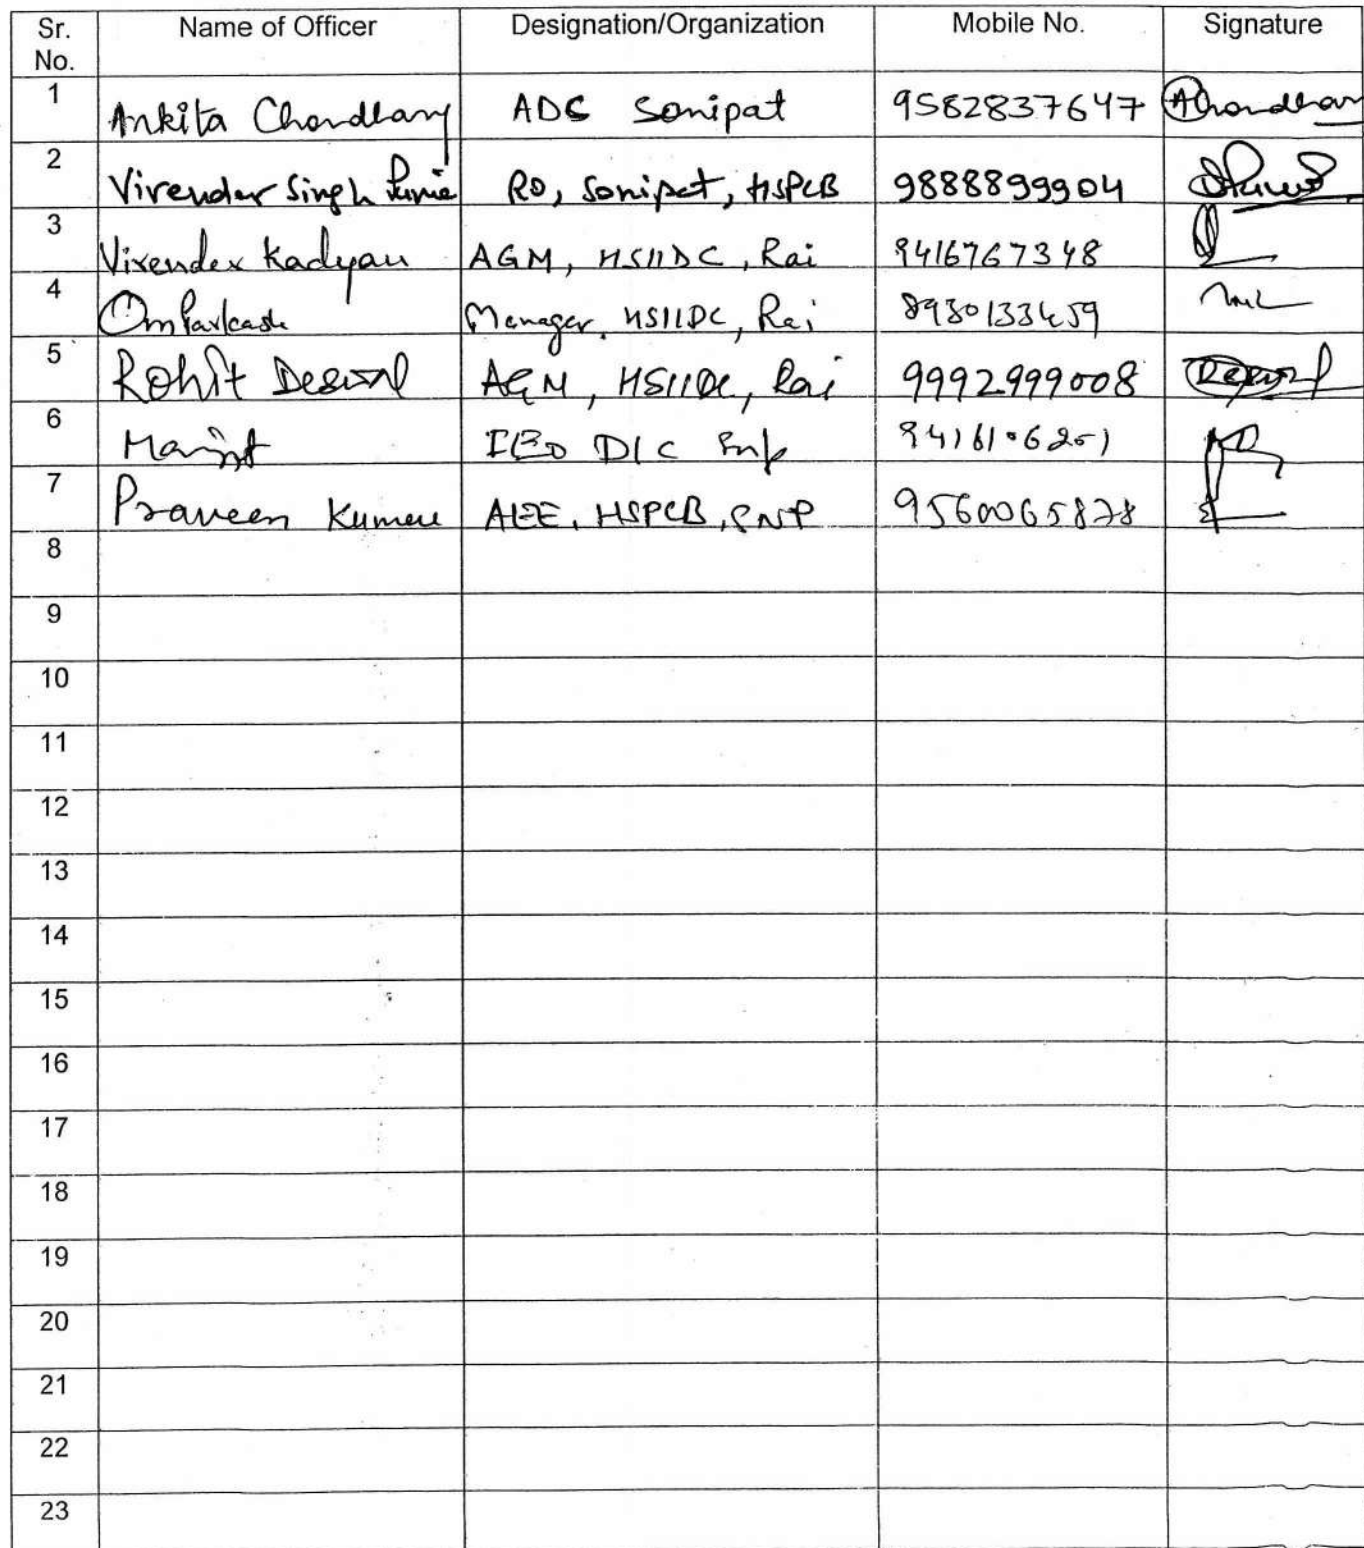 Sr. No. Name of Officer Designation/Organization Mobile No. Signature
1 Ankita Chaudhary ADC Sonipat 9582837647 AChaudhary
2 Virender Singh Punia RO, Sonipat, HSPCB 9888899904
3 Virender Kadyan AGM, HSIIDC, Rai 9416767348
4 Om Parkash Manager, HSIIDC, Rai 8930133459
5 Rohit Deswal AGM, HSIIDC, Rai 9992999008 Deswal
6 Manjit IEO DIC Snp 9416106201
7 Praveen Kumar AEE, HSPCB, SNP
8
9
10
11
12
13
14
15
16
17
18
19
20
21
22
23